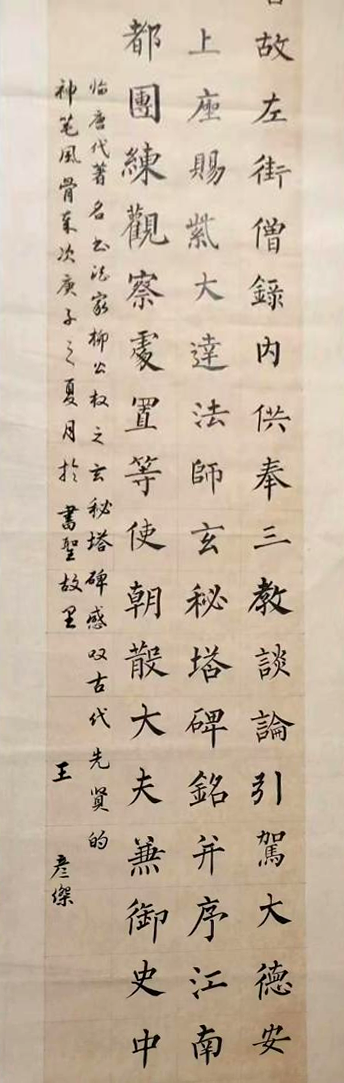 故左街僧錄內供奉三教談論引駕大德安
上座賜紫大達法師玄秘塔碑銘并序江南
都團練觀察處置等使朝散大夫兼御史中
临唐代著名书法家柳公权之玄秘塔碑感叹古代先贤的
神笔风骨岁次庚子之夏月於書聖故里
王彦傑